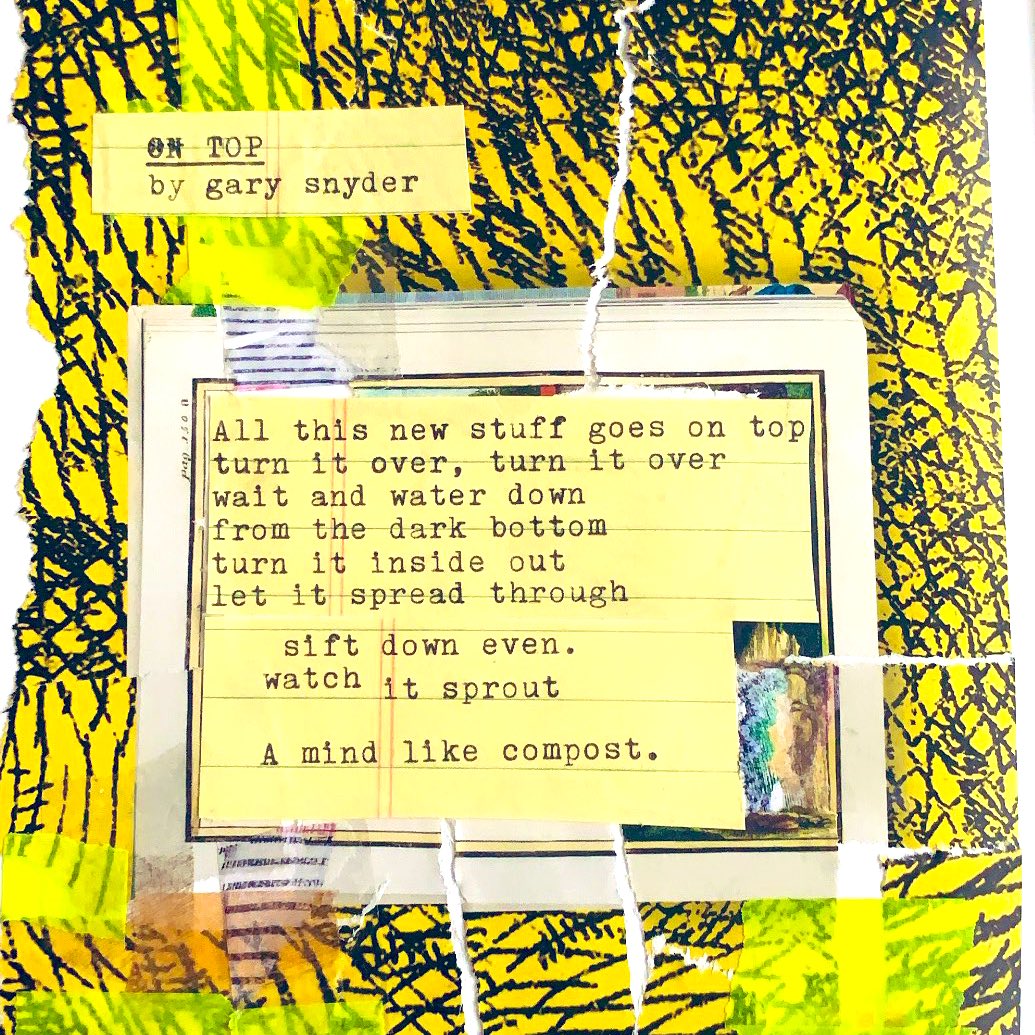 ON TOP
by gary snyder
All this new stuff goes on top
turn it over, turn it over
wait and water down
from the dark bottom
turn it inside out
let it spread through
sift down even.
watch it sprout
A mind like compost.